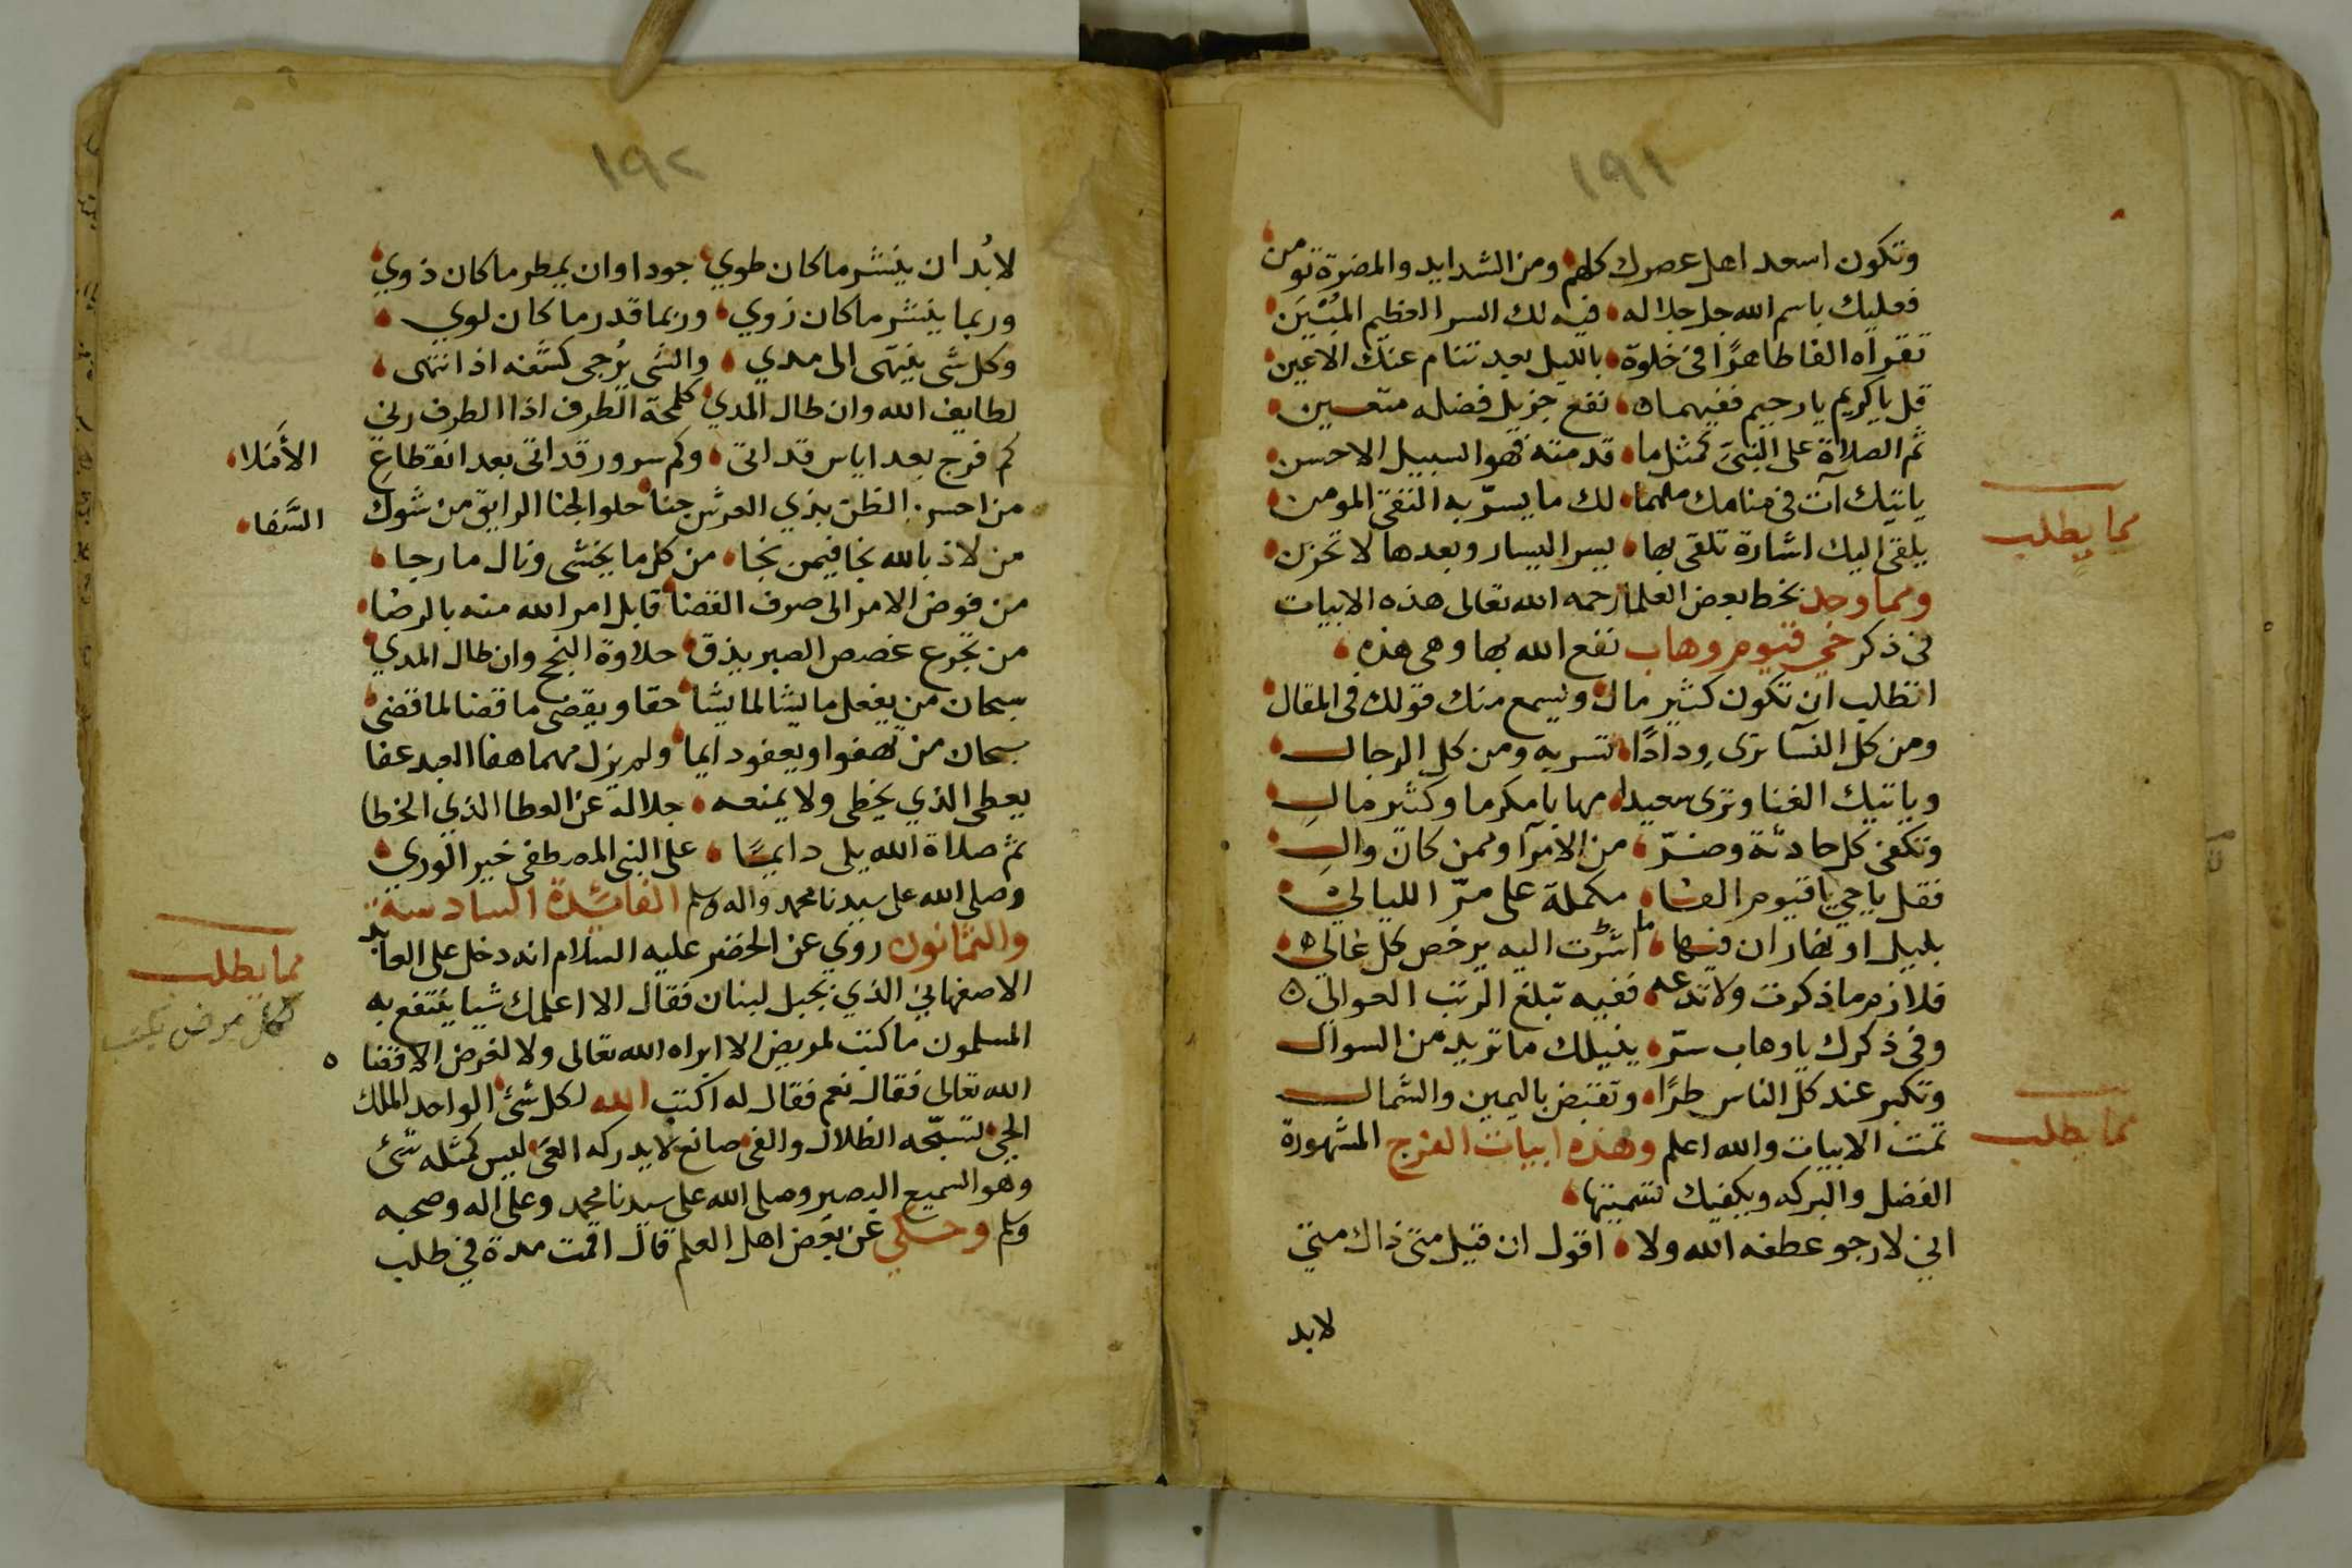 ١٩١
وتكون اسعد اهل عصرك كلهم ومن الشدايد والمضرة تومن
فعليك باسم الله جل جلاله فيه لك السر العظيم المبين
تقراه الفا طاهرا في خلوة بالليل بعد تنام عنك الاعين
قل يا كريم يا رحيم ففيهما نفع جزيل فضله متعين
ثم الصلاة على النبي كمثل ما قدمته فهو السبيل الاحسن
ياتيك آت في منامك ملهما لك ما يسر به التقي المومن
يلقي اليك اشارة تلقى بها يسر اليسار وبعدها لا تحزن
مما يطلب
ومما وجد بخط بعض العلما رحمه الله تعالى هذه الابيات
في ذكر حي قيوم وهاب نفع الله بها وهي هذه
اتطلب ان تكون كثير مال ويسمع منك قولك في المقال
ومن كل النسآ ترى ودادًا تسر به ومن كل الرجال
وياتيك الغنا وترى سعيدا مهابا مكرما وكثير مال
وتكفى كل حادثة وضرّ من الامرآ وممن كان وال
فقل يا حي يا قيوم الفا مكملة على مرّ الليالي
بليل او نهار ان فيها لما اشرت اليه يرخص كل غالي
فلازم ما ذكرت ولا تدعه ففيه تبلغ الرتب العوالي
وفي ذكرك يا وهاب سرّ ينيلك ما تريد من السوال
وتكبر عند كل الناس طرًا وتقبض باليمين والشمال
تمت الابيات والله اعلم وهذه ابيات الفرج المشهورة
مما يطلب
الفضل والبركه ويكفيك تسميتها
اني لارجو عطفه الله ولا اقول ان قيل متى ذاك متي
لابد
١٩٢
لابُد ان ينشر ما كان طوي جودا وان يمطر ما كان ذوي
وربما ينشر ما كان زوي وربما قدر ما كان لوي
وكل شي ينتهى الى مدي والشي يُرجى كشفه اذ انتهى
لطايف الله وان طال المدي كلمحة الطرف اذا الطرف رني
كم فرج بعد اياس قد اتى وكم سرور قد اتى بعد انقطاع
الأملا
من احسن الظن بذي العرش جنا حلو الجنا الرايق من شوك
السَّفا
من لاذ بالله نجا فيمن نجا من كل ما يخشى ونال ما رجا
من فوض الامر الى صرف القضا قابل امر الله منه بالرضا
من تجرع غصص الصبر يذق حلاوة النجح وان طال المدي
سبحان من يفعل ما يشا لما يشا حقا ويقضي ما قضا لما قضي
سبحان من نهفوا ويعفو دايما ولم يزل مهما هفا العبد عفا
يعطي الذي يخطي ولا يمنعه جلاله عن العطا الذي الخطا
ثم صلاة الله يلي دايمًا على النبي المصطفى خير الوري
وصلى الله على سيدنا محمد واله وسلم الفائدة السادسة
والثمانون روي عن الخضر عليه السلام انه دخل على العابد
مما يطلب
الاصفهاني الذي بجبل لبنان فقال الا اعلمك شيا ينتفع به
لكل مرض يكتب
المسلمون ما كتب لمريض الا ابراه الله تعالى ولا لغرض الا قضا
الله تعالى فقال نعم فقال له اكتب الله لكل شئ الواحد الملك
الحي تسبّحه الظلال والفى صانع لا يدركه العى ليس كمثله شئ
وهو السميع البصير وصلى الله على سيدنا محمد وعلى اله وصحبه
وسلم وحكي عن بعض اهل العلم قال اقمت مدة في طلب